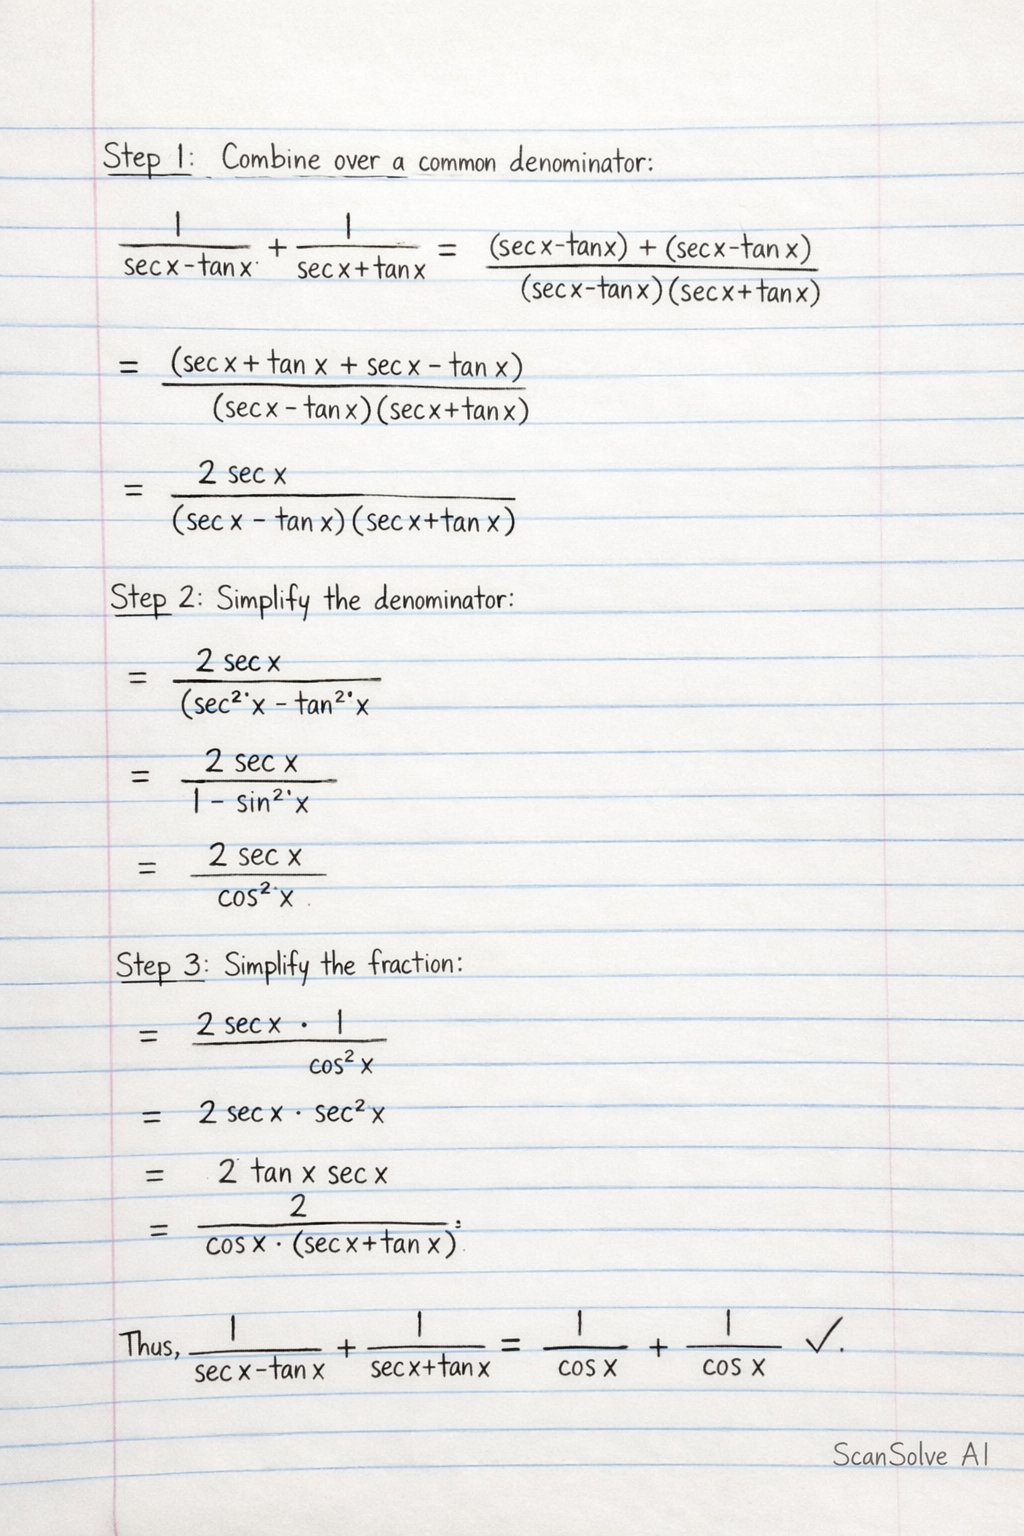 Step 1: Combine over a common denominator:
1/(sec x - tan x) + 1/(sec x + tan x) = ((sec x - tan x) + (sec x - tan x))/((sec x - tan x)(sec x + tan x))
= (sec x + tan x + sec x - tan x)/((sec x - tan x)(sec x + tan x))
= 2 sec x/((sec x - tan x)(sec x + tan x))
Step 2: Simplify the denominator:
= 2 sec x/(sec² x - tan² x
= 2 sec x/1 - sin² x
= 2 sec x/cos² x
Step 3: Simplify the fraction:
= 2 sec x · 1/cos² x
= 2 sec x · sec² x
= 2 tan x sec x
= 2/cos x · (sec x + tan x)
Thus, 1/(sec x - tan x) + 1/(sec x + tan x) = 1/cos x + 1/cos x ✓.
ScanSolve AI